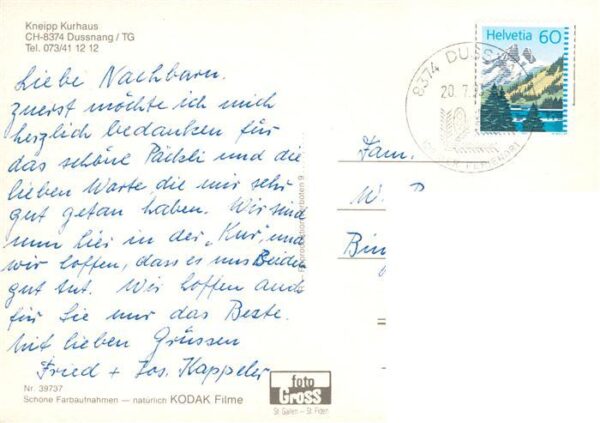 Kneipp Kurhaus
CH-8374 Dussnang / TG
Tel. 073/41 12 12
Helvetia 60
8374 DUSS
20. 7.
Liebe Nachbarn.
zuerst möchte ich mich
herzlich bedanken für
das schöne Päckli und die
lieben Worte, die mir sehr
gut getan haben. Wir sind
nun hier in der „Kur", und
wir hoffen, dass es uns Beiden
gut tut. Wir hoffen auch
für Sie nur das Beste.
Mit lieben Grüssen
Fried + Jos. Kappeler
Fam.
W.
Bin
Reproduktion verboten 9
Nr. 39737
Schöne Farbaufnahmen — natürlich KODAK Filme
foto
Gross
St. Gallen — St. Fiden